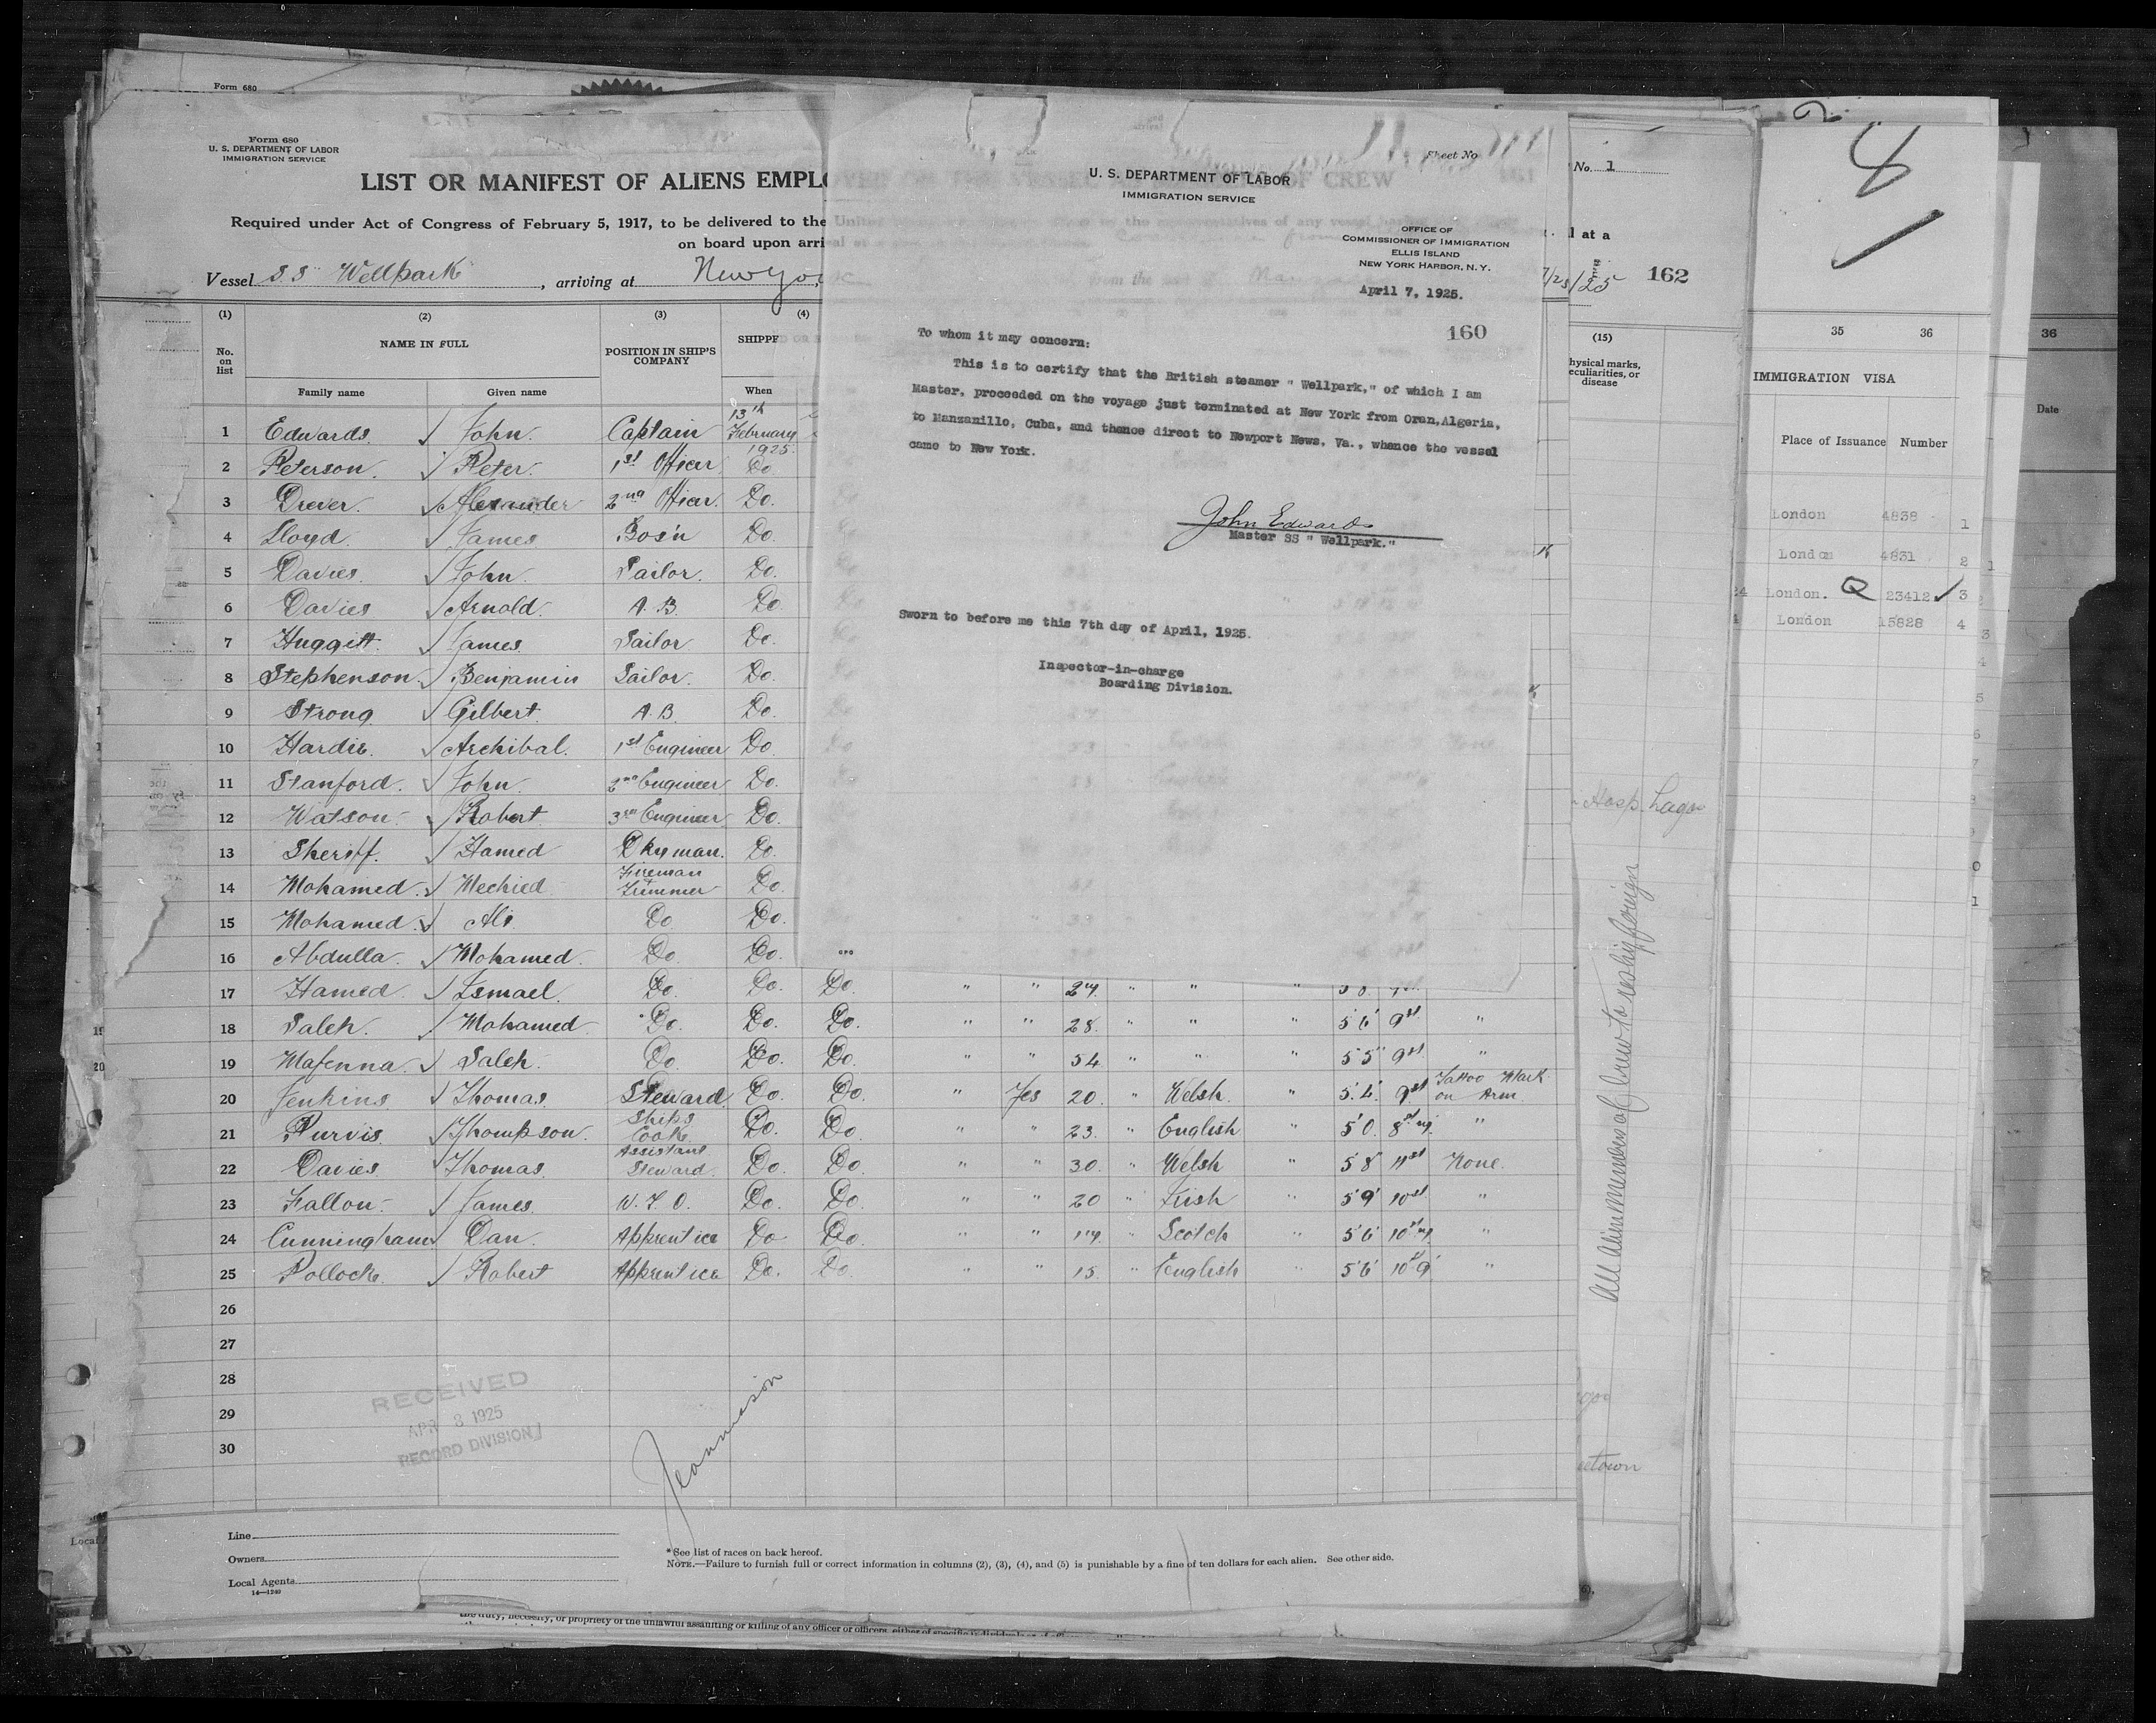 Form 680
Form 680
U. S. DEPARTMENT OF LABOR
IMMIGRATION SERVICE
LIST OR MANIFEST OF ALIENS EMPLO
Required under Act of Congress of February 5, 1917, to be delivered to the
on board upon arri
Vessel SS Wellpark, arriving at New Yo
(1) (2) (3) (4)
No. on list
NAME IN FULL
POSITION IN SHIP'S COMPANY
SHIPPE
Family name Given name When
13th February 1925.
1 Edwards. John. Captain
2 Peterson. Peter. 1st Officer Do.
3 Drever. Alexander 2nd Officer. Do.
4 Lloyd. James Bos'n Do.
5 Davies. John. Sailor. Do.
6 Davies Arnold. A.B. Do.
7 Huggett. James. Sailor Do.
8 Stephenson. Benjamin Sailor. Do.
9 Strong Gilbert. A.B. Do.
10 Hardie. Archibal. 1st Engineer Do.
11 Stanford. John. 2nd Engineer Do.
12 Watson. Robert 3rd Engineer Do.
13 Sheriff. Hamed Dkyman. Do.
14 Mohamed. Mechied Fireman Trimmer Do.
15 Mohamed. Ali. Do Do.
16 Abdulla. Mohamed. Do. Do.
17 Hamed. Ismael. Do. Do. Do. " " 27. " " "
18 Saleh. Mohamed. Do. Do. Do. " " 28. " " " 5'6" 9st "
19 Mafenna. Saleh. Do. Do. Do. " " 54 " " " 5'5" 9st "
20 Jenkins Thomas. Steward. Do. Do. " Yes 20. " Welsh. " 5'4" 9st Tattoo Mark on Arm.
21 Purvis. Thompson. Ships Cook. Do. Do. " " 23. " English " 5'0" "
22 Davies Thomas. Assistant Steward. Do. Do. " " 30. " Welsh " 5'8" 11st None.
23 Fallon. James. W.T.O. Do. Do. " " 20 " Irish " 5'9" 10st "
24 Cunningham Dan. Apprentice Do Do. " " 17. " Scotch " 5'6" "
25 Pollock. Robert Apprentice Do. Do. " " 15. " English " 5'6" "
26
27
28
29
30
RECEIVED
APR 8 1925
RECORD DIVISION
Line
Owners
Local Agents
14—1240
* See list of races on back hereof.
NOTE.—Failure to furnish full or correct information in columns (2), (3), (4), and (5) is punishable by a fine of ten dollars for each alien. See other side.
the duty, necessity, or propriety of the unlawful assaulting or killing of any officer or officers, either of specific individuals or of
Sheet No
U. S. DEPARTMENT OF LABOR
IMMIGRATION SERVICE
OFFICE OF
COMMISSIONER OF IMMIGRATION
ELLIS ISLAND
NEW YORK HARBOR, N. Y.
April 7, 1925.
160
To whom it may concern:
This is to certify that the British steamer " Wellpark," of which I am
Master, proceeded on the voyage just terminated at New York from Oran,Algeria,
to Manzanillo, Cuba, and thence direct to Newport News, Va., whence the vessel
came to New York.
John Edwards
Master SS " Wellpark."
Sworn to before me this 7th day of April, 1925.
Inspector-in-charge
Boarding Division.
GPO
No. 1
l at a
162
(15)
hysical marks,
eculiarities, or
disease
Hosp. Lagos
All Alien Members of Crew to reship foreign
etown
35 36
IMMIGRATION VISA
Place of Issuance Number
London 4838 1
London 4831 2
London. Q 23412 3
London 15828 4
36
Date